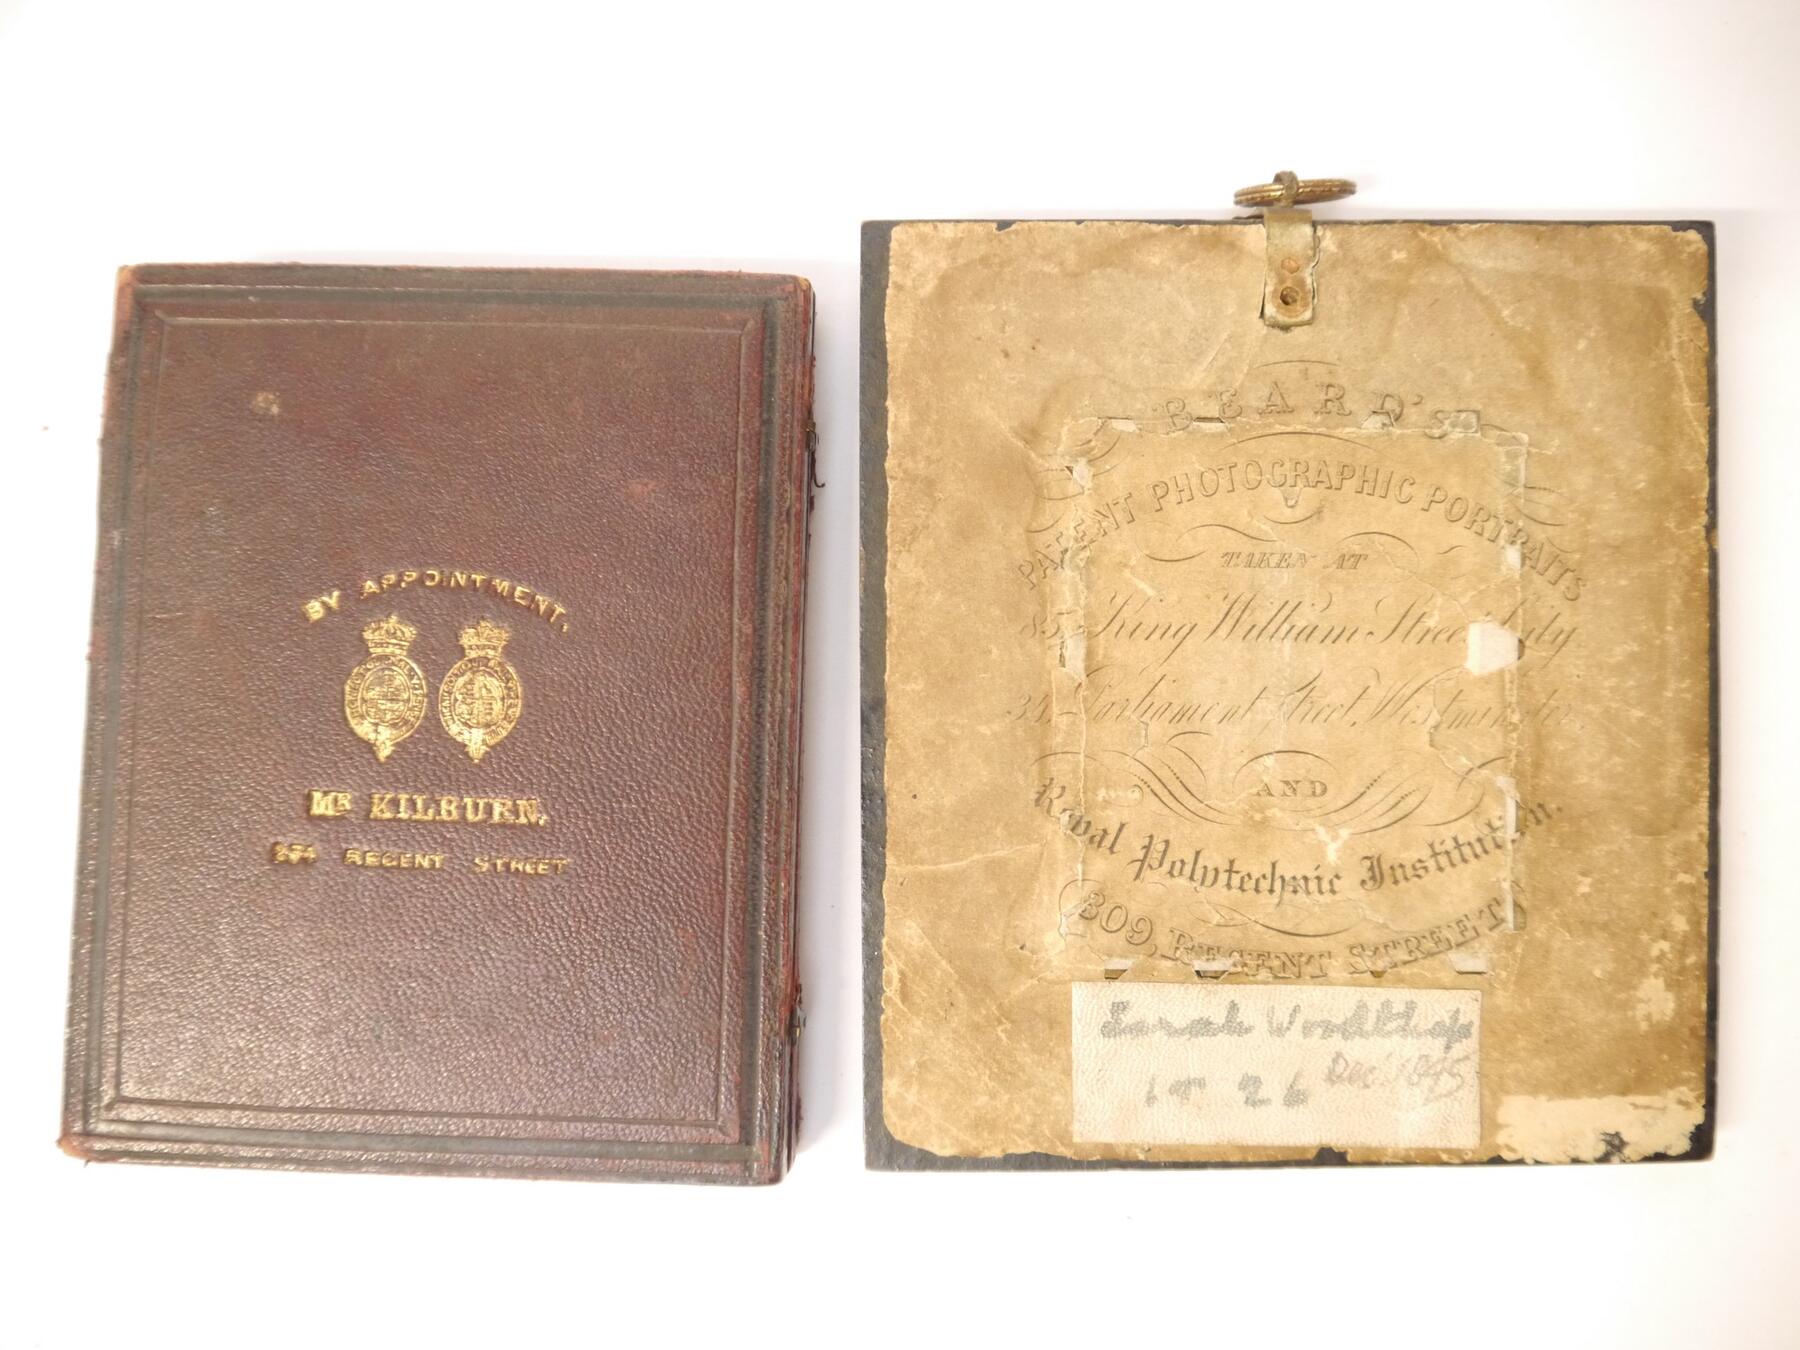 BY APPOINTMENT,
MR KILBURN,
234 REGENT STREET
BEARD'S
PATENT PHOTOGRAPHIC PORTRAITS
TAKEN AT
85, King William Street City
34, Parliament Street, Westminster,
AND
Royal Polytechnic Institution.
309, REGENT STREET
Sarah
26 Dec 1845